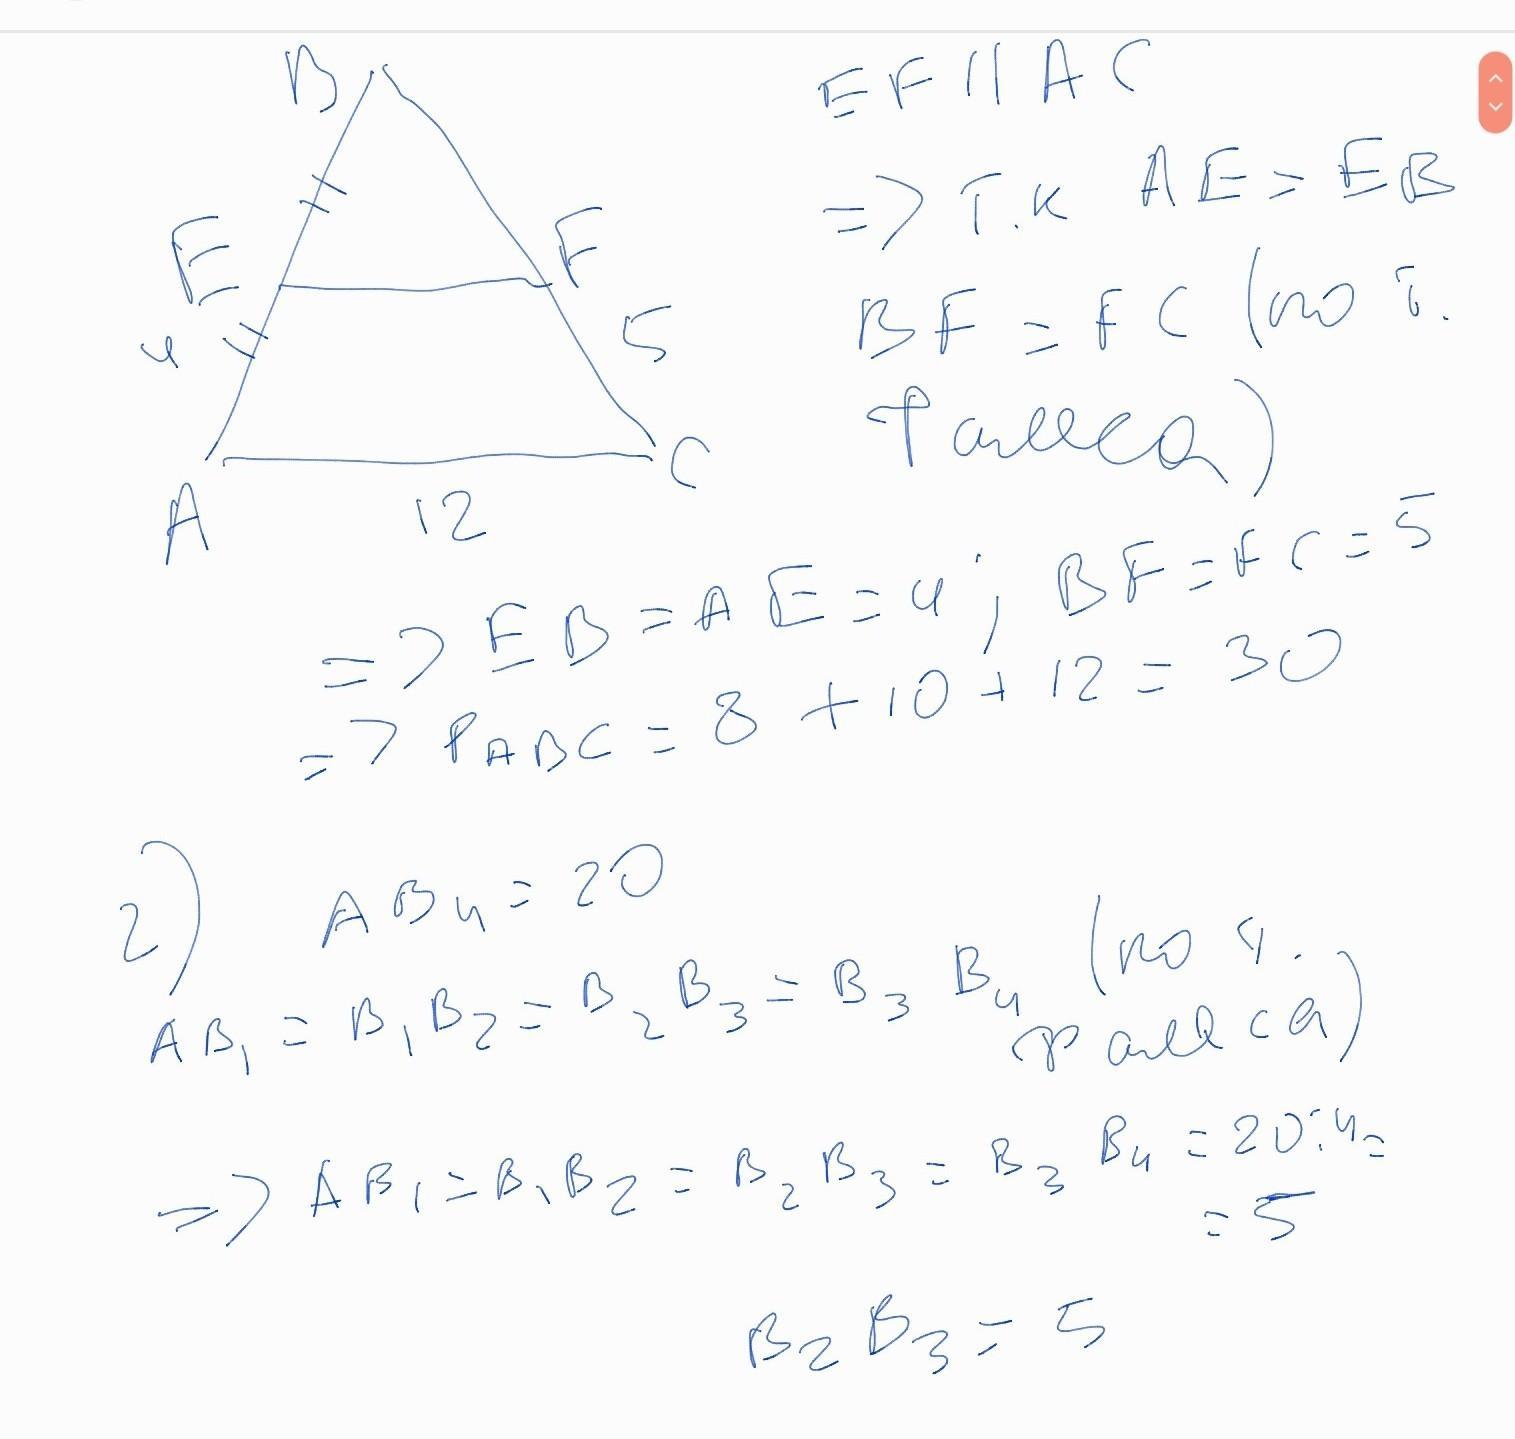 B
E
F
4
5
A
12
C
EF || AC
=> Т.к AE = EB
BF = FC (по т.
Фалеса)
=> EB = AE = 4 ; BF = FC = 5
=> PABC = 8 + 10 + 12 = 30
2) AB4 = 20
AB1 = B1B2 = B2B3 = B3B4 (по т.
Фалеса)
=> AB1 = B1B2 = B2B3 = B3B4 = 20:4=
= 5
B2B3 = 5